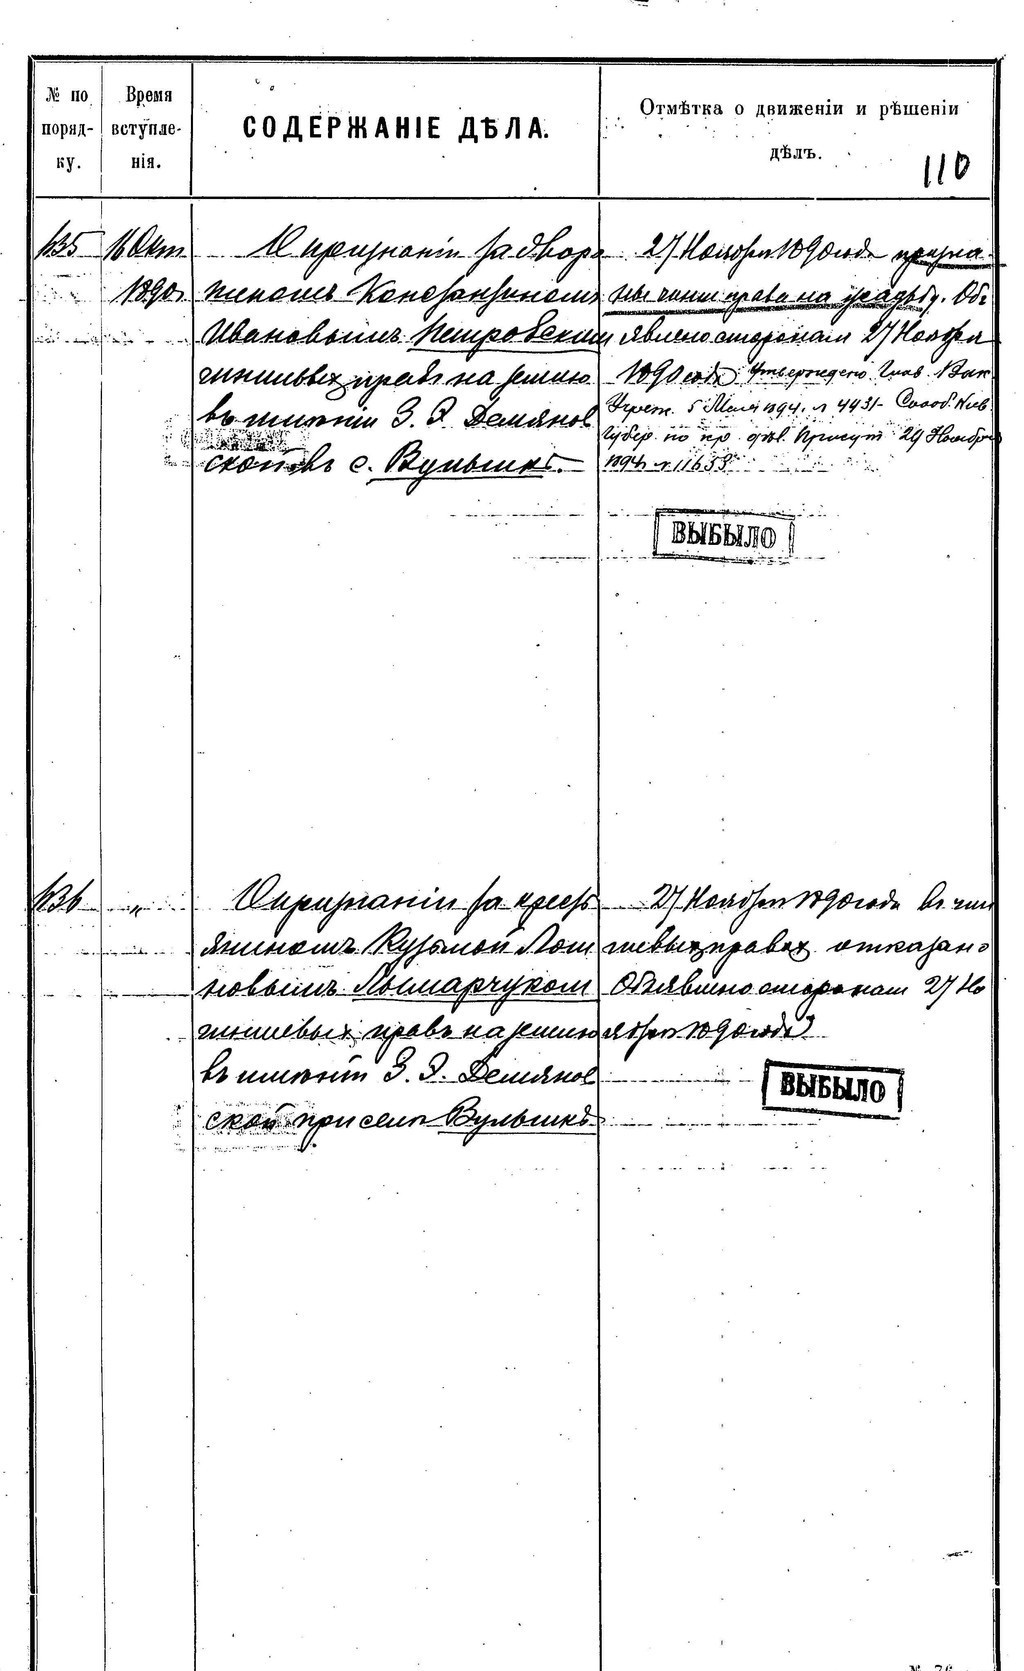 № по поряд- ку.
Время вступле- нія.
СОДЕРЖАНІЕ ДѢЛА.
Отмѣтка о движеніи и рѣшеніи
дѣлъ.
110
135
16 Окт
1890
О признаніи за дворя
ниномъ Константиномъ
Ивановымъ Петровскимъ
чиншевыхъ правъ на землю
въ имѣніи З. Э. Демянов
ской въ с. Вульшкѣ.
27 Ноября 1890 года призна
ны чинш права на усадьбу. Объ
явлено сторонам 27 Ноября
1890 года Утверждено Глав. Вык
Учреж. 5 Мая 1894. № 4431 - Сообщ. Кіев
Губер. по кр. дѣл. Присут 29 Ноября
1894 № 11659
ВЫБЫЛО
136
"
О признаніи за кресть
яниномъ Кузьмой Лог
новымъ Лымарчуком
чиншевыхъ правъ на землю
въ имѣніи З. Э. Демянов
ской при селѣ Вульшкѣ
27 Ноября 1890 года въ чин
шевыхъ правах отказано
Объявлено сторонам 27 Но
ября 1890 года
ВЫБЫЛО